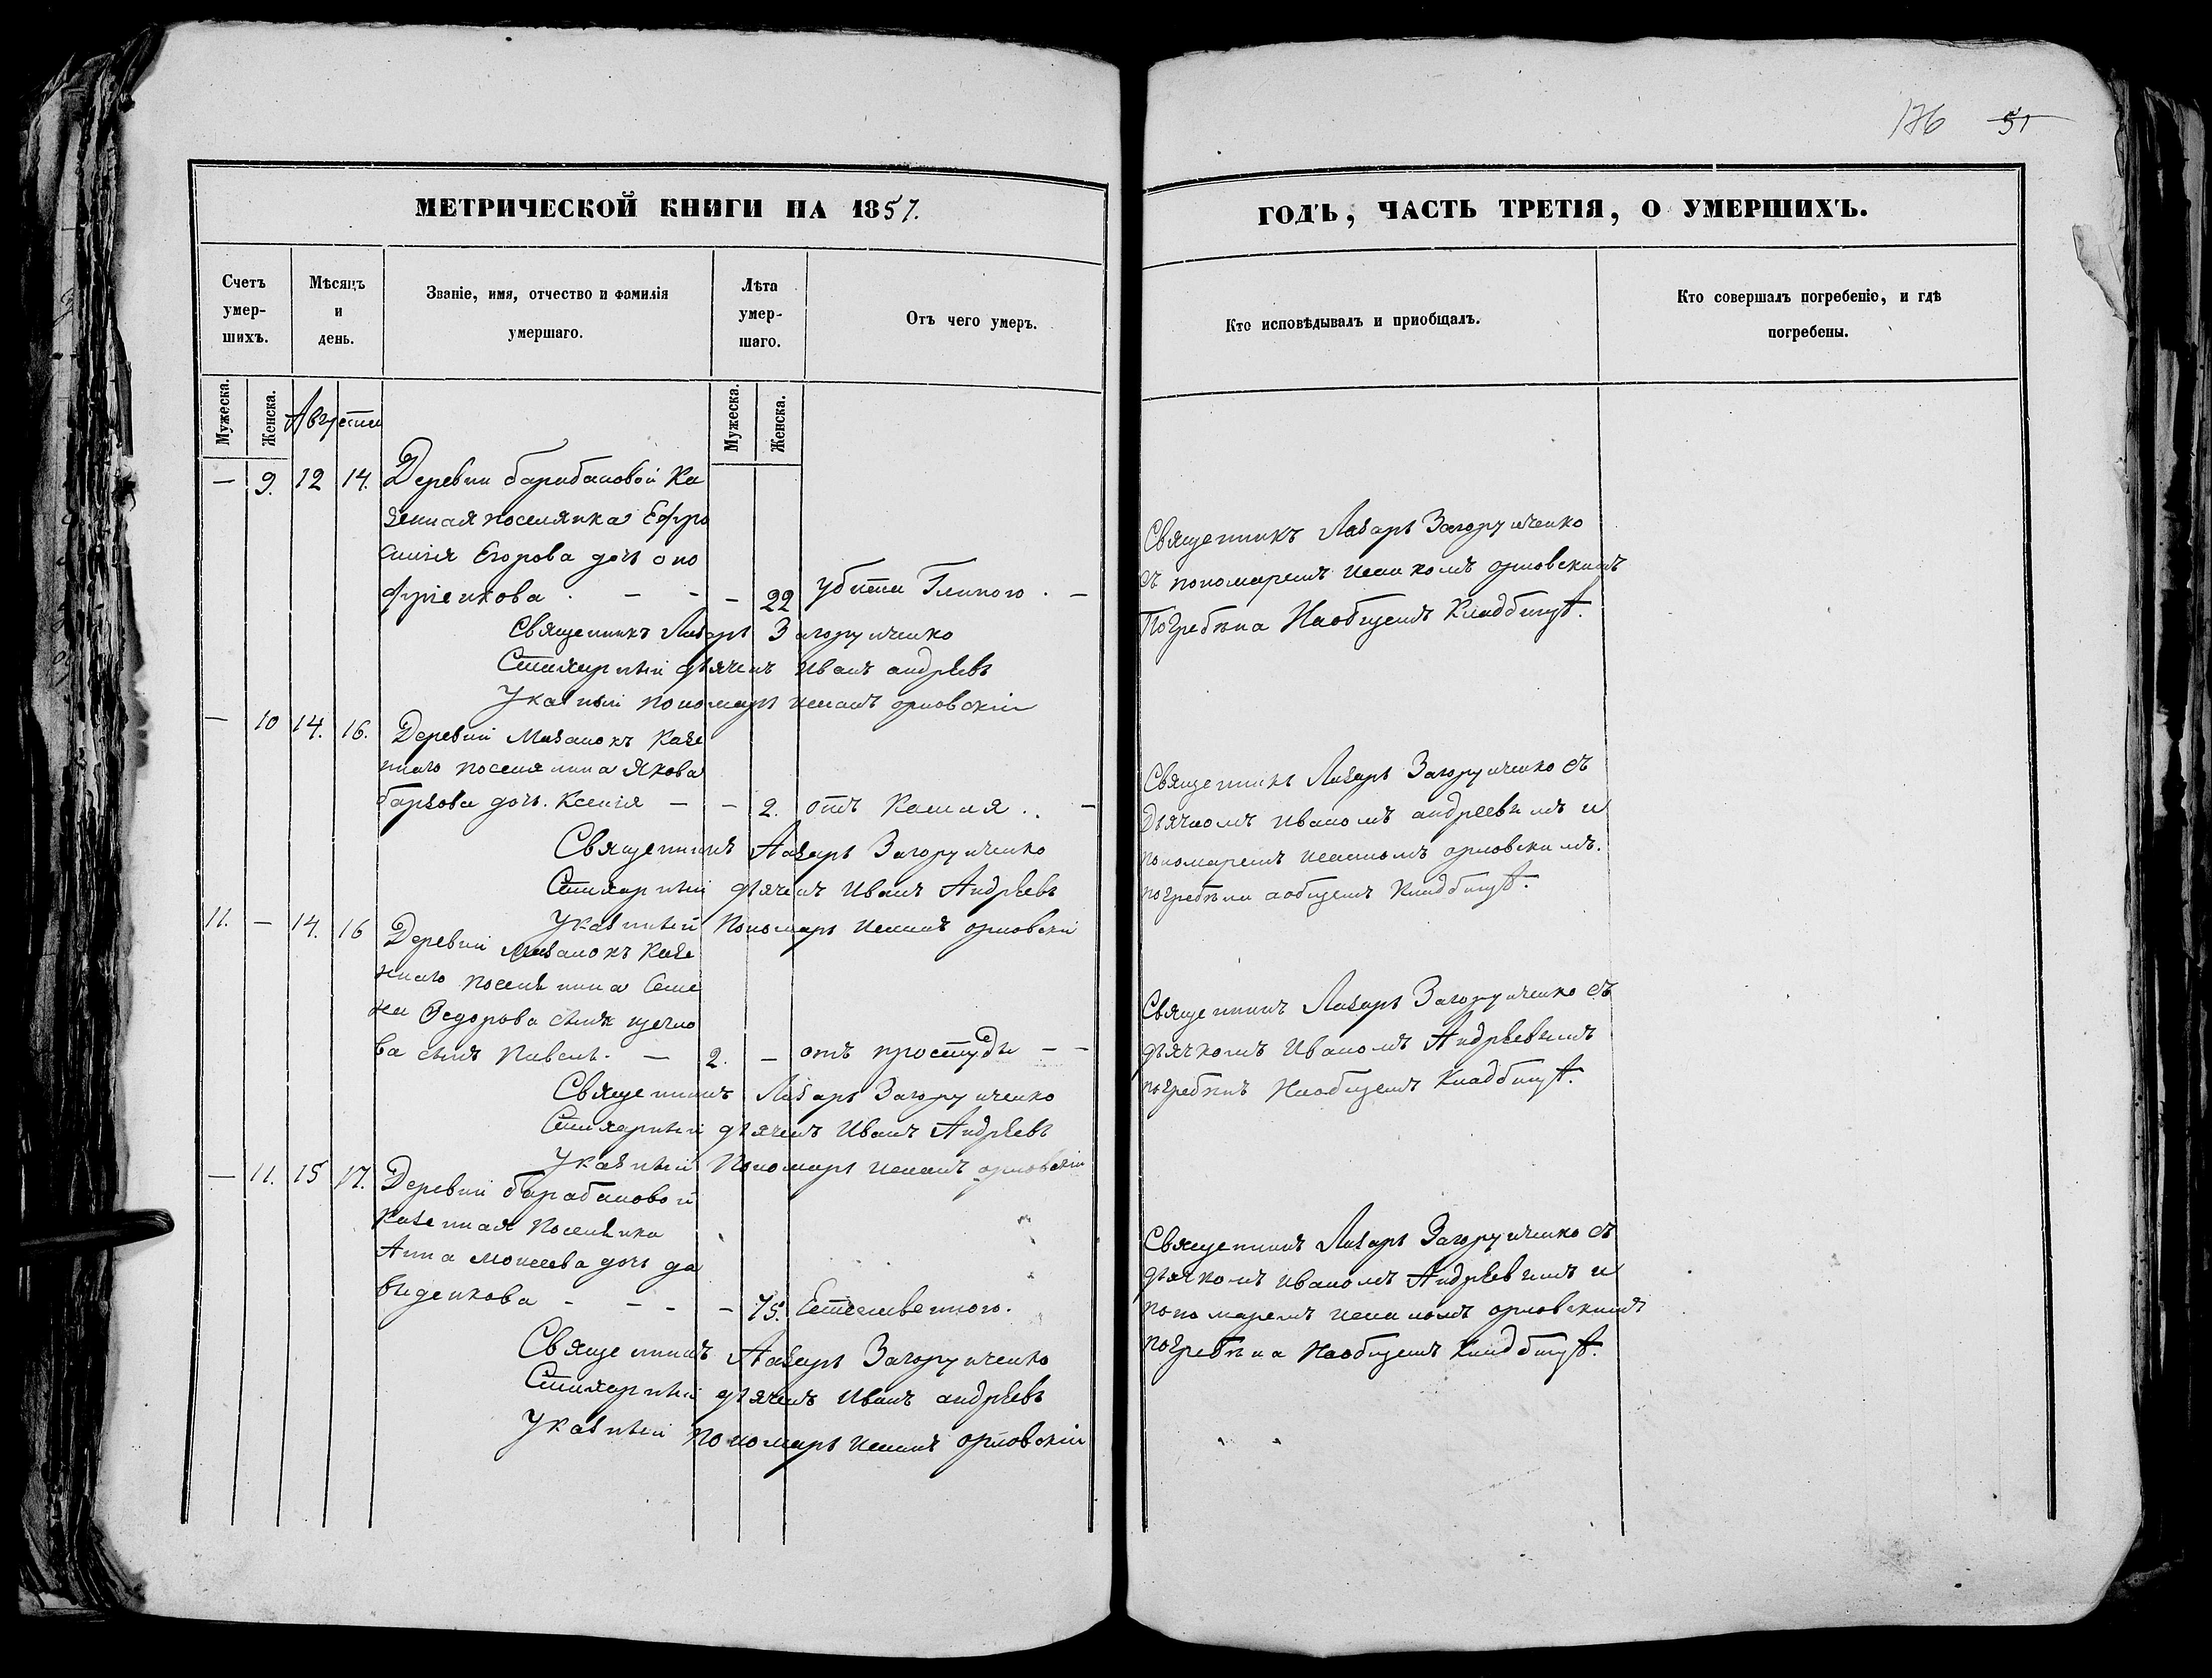 176 51
МЕТРИЧЕСКОЙ КНИГИ НА 1857.
ГОДЪ, ЧАСТЬ ТРЕТІЯ, О УМЕРШИХЪ.
Счетъ умер-шихъ.
Мѣсяцъ и день.
Званіе, имя, отчество и фамилія умершаго.
Лѣта умер-шаго.
Отъ чего умеръ.
Кто исповѣдывалъ и приобщалъ.
Кто совершалъ погребеніе, и гдѣ погребены.
Мужеска. Женска. Августа Мужеска. Женска.
— 9. 12 14. Деревни барабановой Ка
зенная поселянка Ефро
синія Егорова дочь оно
фріенкова . — - — 22 убита Глиною . —
Священникъ Лазарь Загоруйченко
Стихарный дьячекъ Иванъ андрѣевъ
Указный пономарь исаакъ орловскій
Священникъ Лазарь Загоруйченко
съ пономаремъ исаакомъ орловскимъ
Погребена Наобщемъ Кладбищѣ.
— 10 14. 16. Деревни Мазанокъ Казе
ннаго поселянина Якова
барзова дочь. Ксенія — — 2. отъ Кашля . . —
Священникъ Лазарь Загоруйченко
Стихарный дьячекъ Иванъ Андрѣевъ
Указнный Пономарь исаакъ орловскй
Священникъ Лазарь Загоруйченко съ
Дьячкомъ иваномъ андреевымъ и
пономаремъ исаакомъ орловскимъ.
погребены аобщемъ Кладбищѣ.
11. — 14. 16 Деревни Мазанокъ Казе
ннаго поселянина Семе
на Ѳедорова сына
ва сынъ Павелъ. — 2. — отъ простуды — —
Священникъ Лазарь Загоруйченко
Стихарный дьячекъ Иванъ Андрѣевъ
Указный Пономарь исаакъ орловскій
Священникъ Лазарь Загоруйченко съ
дьячкомъ Иваномъ Андрѣевымъ
погребенъ Наобщемъ Кладбищѣ.
— 11. 15 17. Деревни барабановой
Казенная поселянка
Анна моисеева дочь да
выденкова - — - — 75. Естественного.
Священникъ Лазарь Загоруйченко
Стихарный дьячекъ Иванъ андрѣевъ
Указный пономарь исаакъ орловскій
Священникъ Лазарь Загоруйченко съ
дьячкомъ иваномъ Андрѣевымъ и
пономаремъ исаакомъ орловскимъ
погребена Наобщемъ Кладбищѣ.